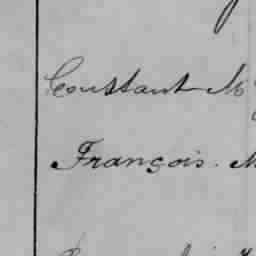 Constant M
François. M